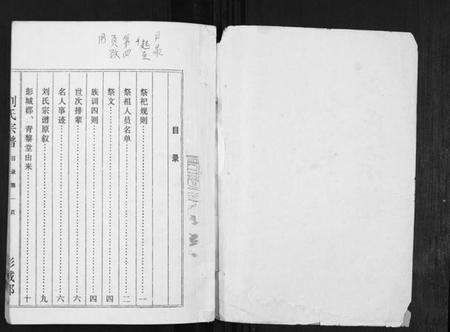 目录
祭祀规则……………………一
祭祖人员名单………………二
祭文…………………………四
族训四则……………………四
世次排辈……………………六
名人事迹……………………六
刘氏宗谱原叙………………九
彭城郡、青藜堂由来………十
刘氏宗谱 目录 第一页 彭城郡